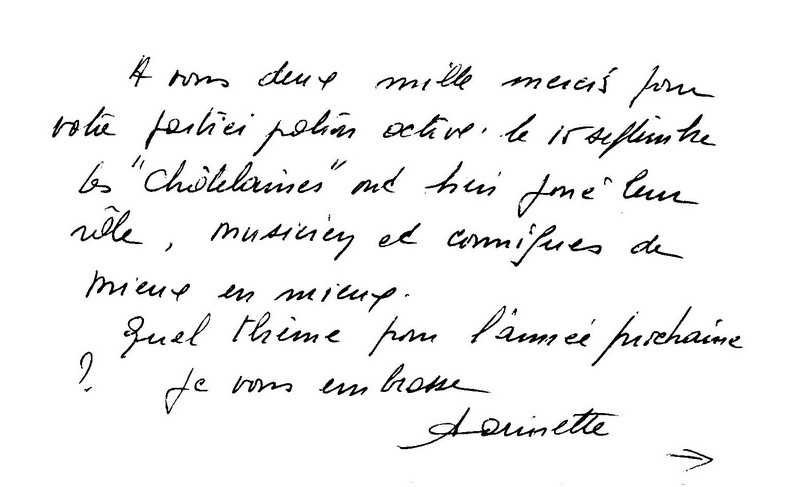 A vous deux mille mercis pour
votre participation active. le 15 septembre
les "Châtelaines" ont bien joué leur
rôle, musicien et comiques de
mieux en mieux.
Quel thème pour l'année prochaine
? Je vous embrasse